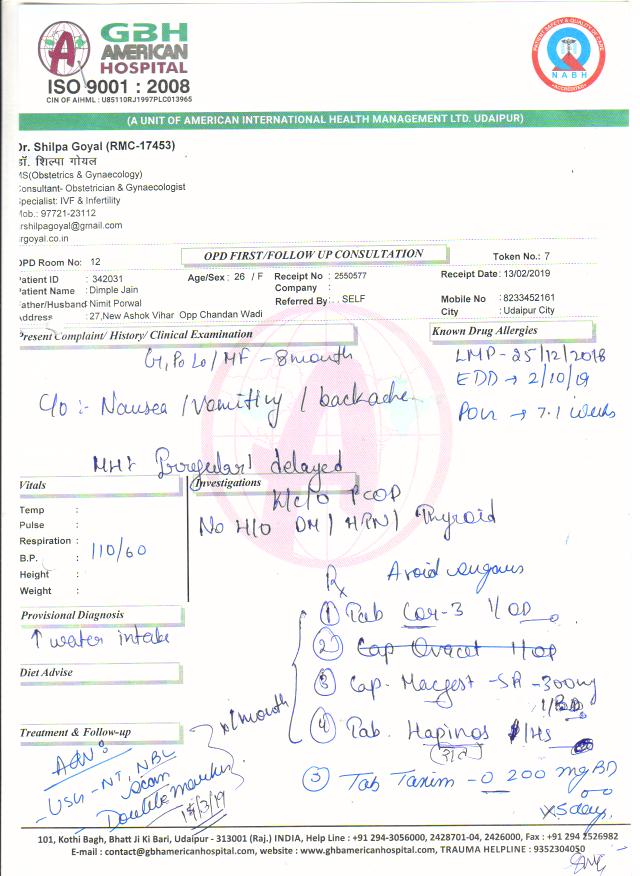 GBH
AMERICAN
HOSPITAL
ISO 9001 : 2008
CIN OF AIHML : U85110RJ1997PLC013965
PATIENT SAFETY & QUALITY OF CARE
NABH
ACCREDITED
(A UNIT OF AMERICAN INTERNATIONAL HEALTH MANAGEMENT LTD. UDAIPUR)
Dr. Shilpa Goyal (RMC-17453)
डॉ. शिल्पा गोयल
MS(Obstetrics & Gynaecology)
Consultant- Obstetrician & Gynaecologist
Specialist: IVF & Infertility
Mob.: 97721-23112
rshilpagoyal@gmail.com
rgoyal.co.in
OPD FIRST/FOLLOW UP CONSULTATION
OPD Room No: 12 Token No.: 7
Patient ID : 342031 Age/Sex : 26 / F Receipt No : 2550577 Receipt Date: 13/02/2019
Patient Name : Dimple Jain Company :
Father/Husband Nimit Porwal Referred By: . SELF Mobile No : 8233452161
Address : 27,New Ashok Vihar Opp Chandan Wadi City : Udaipur City
Present Complaint/ History/ Clinical Examination Known Drug Allergies
G1P0L0/MF - 8 month LMP - 25/12/2018
EDD → 2/10/19
C/o :- Nausea / vomiting / backache
POG → 7.1 weeks
MH: Irregular/ delayed
Vitals Investigations
K/c/o PCOD
No H/O DM / HTN / Thyroid
Temp :
Pulse :
Respiration :
B.P. : 110/60
Height :
Weight :
Rx Avoid
① Tab Cor-3 1/OD
Provisional Diagnosis
↑ water intake
② Cap Ovacet 1/OD
③ Cap. Macgest -SR -300mg
1/BD
Diet Advise
x 1 month
④ Tab. Hapinos 1/HS
Treatment & Follow-up
(रात)
Adv:
- USG - NT, NBL scan
Double marker
③ Tab Taxim -O 200 mg BD
x5 days
101, Kothi Bagh, Bhatt Ji Ki Bari, Udaipur - 313001 (Raj.) INDIA, Help Line : +91 294-3056000, 2428701-04, 2426000, Fax : +91 294 2526982
E-mail : contact@gbhamericanhospital.com, website : www.gbhamericanhospital.com, TRAUMA HELPLINE : 9352304050